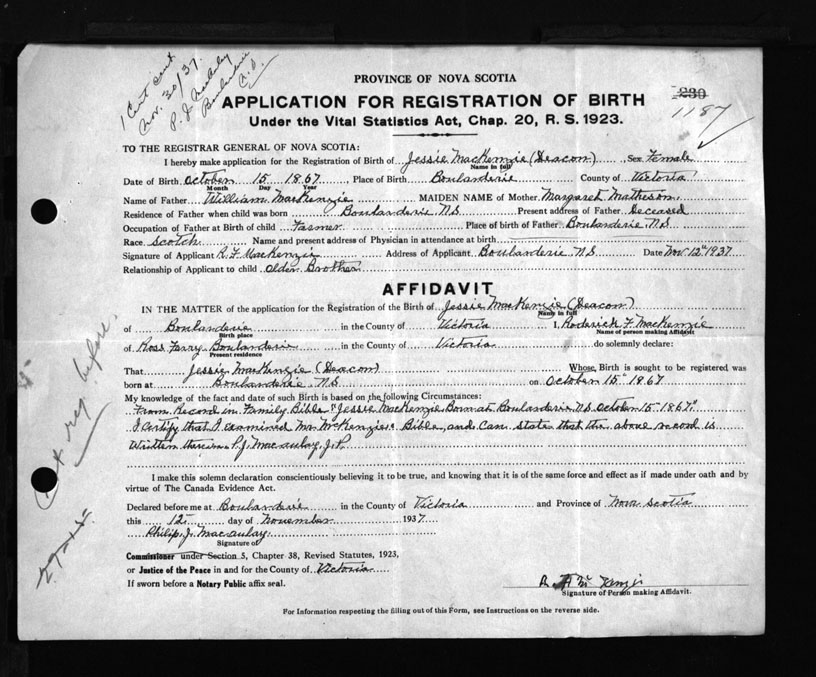 1 Cert sent
Nov. 30/37.
P. J. Macaulay
Boularderie
C.B.
PROVINCE OF NOVA SCOTIA
APPLICATION FOR REGISTRATION OF BIRTH
Under the Vital Statistics Act, Chap. 20, R. S. 1923.
230
1187
TO THE REGISTRAR GENERAL OF NOVA SCOTIA:
I hereby make application for the Registration of Birth of Jessie MacKenzie (Deacon) Sex Female
Name in full
Date of Birth October 15 1867 Place of Birth Boularderie County of Victoria
Month Day Year
Name of Father William MacKenzie MAIDEN NAME of Mother Margaret Matheson
Residence of Father when child was born Boularderie N.S Present address of Father Deceased
Occupation of Father at Birth of child Farmer Place of birth of Father Boularderie N.S
Race Scotch Name and present address of Physician in attendance at birth
Signature of Applicant R F MacKenzie Address of Applicant Boularderie N.S Date Nov 12" 1937
Relationship of Applicant to child Older Brother
AFFIDAVIT
IN THE MATTER of the application for the Registration of the Birth of Jessie MacKenzie (Deacon)
Name in full
of Boularderie in the County of Victoria I, Roderick F. MacKenzie
Birth place Name of person making Affidavit
of Ross Ferry Boularderie in the County of Victoria do solemnly declare:
Present residence
That Jessie MacKenzie (Deacon) Whose Birth is sought to be registered was
born at Boularderie N.S on October 15" 1867
My knowledge of the fact and date of such Birth is based on the following Circumstances:
From Record in Family Bible "Jessie MacKenzie Born at Boularderie N.S October 15" 1867"
I Certify that I examined Mr. McKenzie's Bible, and Can state that the above record is
Written therein P.J. Macaulay J.P.
I make this solemn declaration conscientiously believing it to be true, and knowing that it is of the same force and effect as if made under oath and by
virtue of The Canada Evidence Act.
Declared before me at Boularderie in the County of Victoria and Province of Nova Scotia
this 12 day of November 1937
Philip J. Macaulay
Signature of
Commissioner under Section 5, Chapter 38, Revised Statutes, 1923,
or Justice of the Peace in and for the County of Victoria
If sworn before a Notary Public affix seal.
Signature of Person making Affidavit.
For Information respecting the filling out of this Form, see Instructions on the reverse side.
reg before.